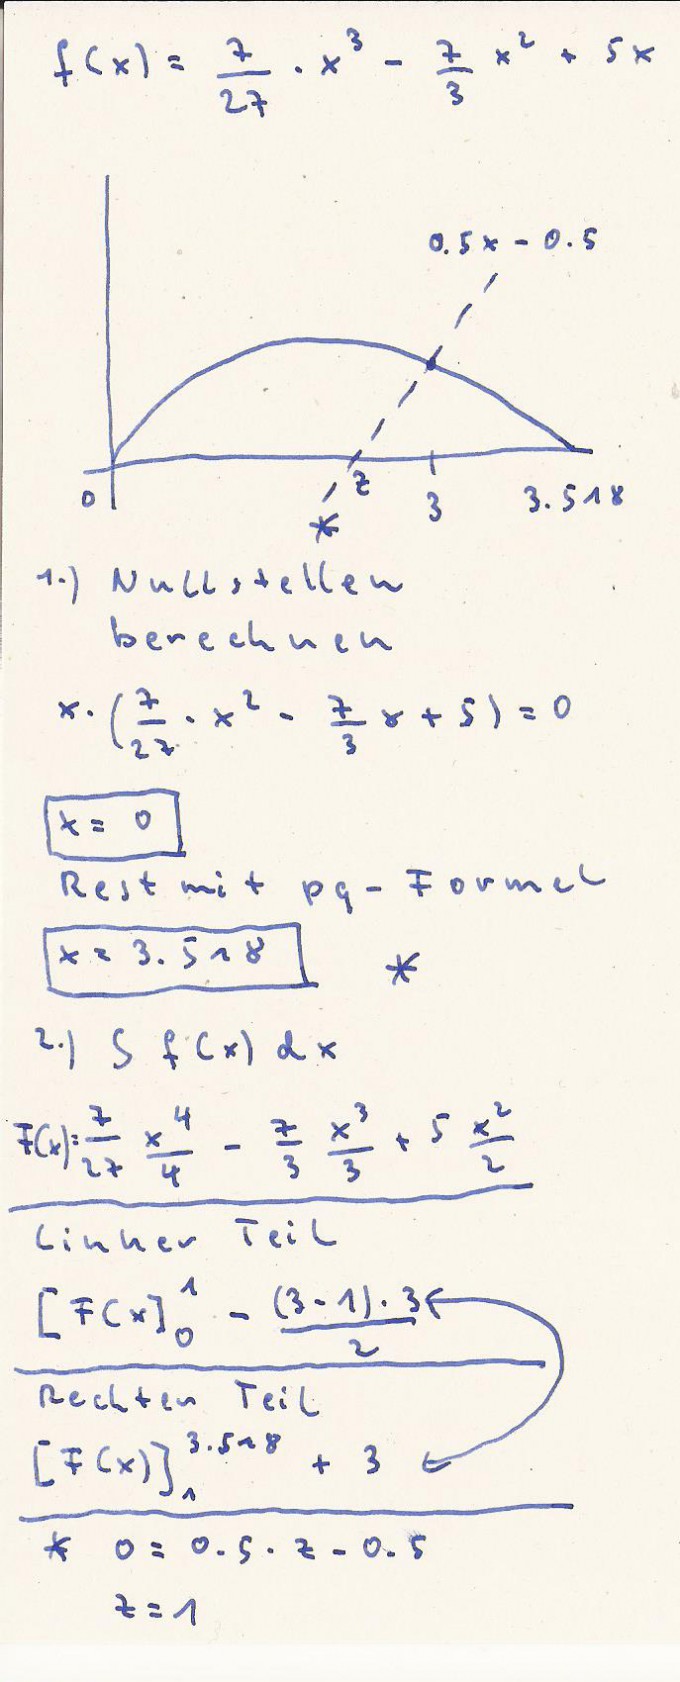 f(x) = 7/27 · x³ - 7/3 x² + 5x
0.5x - 0.5
0 z 3 3.518
*
1.) Nullstellen
berechnen
x · (7/27 · x² - 7/3 x + 5) = 0
x = 0
Rest mit pq-Formel
x = 3.518 *
2.) ∫ f(x) dx
F(x) = 7/27 x⁴/4 - 7/3 x³/3 + 5 x²/2
Linker Teil
[F(x)]₀¹ - (3-1)·3/2
Rechten Teil
[F(x)]₁^3.518 + 3
* 0 = 0.5 · z - 0.5
z = 1